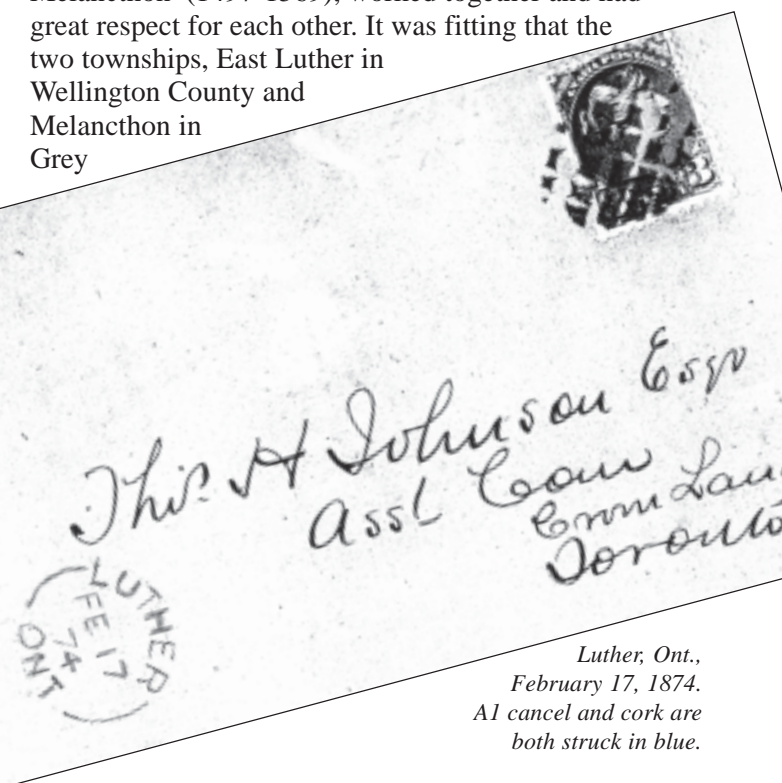 worked together and had
great respect for each other. It was fitting that the
two townships, East Luther in
Wellington County and
Melancthon in
Grey
Thos. H Johnson Esqr
Asst Com
Crown
Toronto
LUTHER
FE 17
74
ONT
Luther, Ont.,
February 17, 1874.
A1 cancel and cork are
both struck in blue.